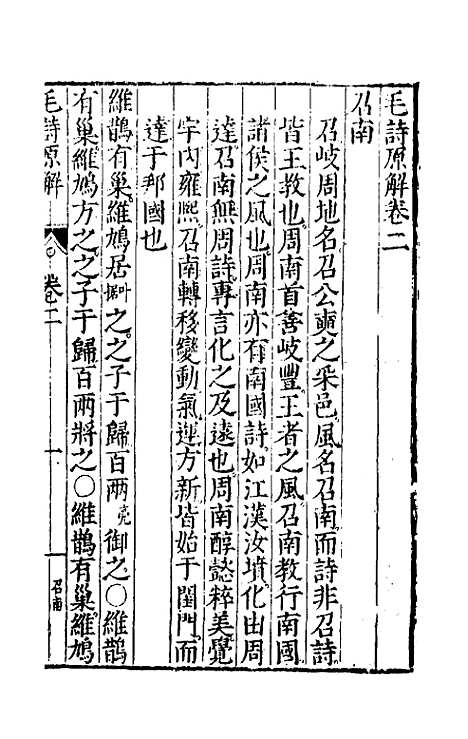 毛詩原解卷二
召南
召岐周地名召公奭之采邑風名召南而詩非召詩
皆王教也周南首善岐豐王者之風召南教行南國
諸侯之風也周南亦有南國詩如江漢汝墳化由周
達召南無周詩專言化之及遠也周南醇懿粹美覺
宇內雍熈召南轉移變動氣運方新皆始于閨門而
達于邦國也
維鵲有巢維鳩居叶据之之子于歸百兩亮御之○維鵲
有巢維鳩方之之子于歸百兩將之○維鵲有巢維鳩
毛詩原解 卷二 一 召南